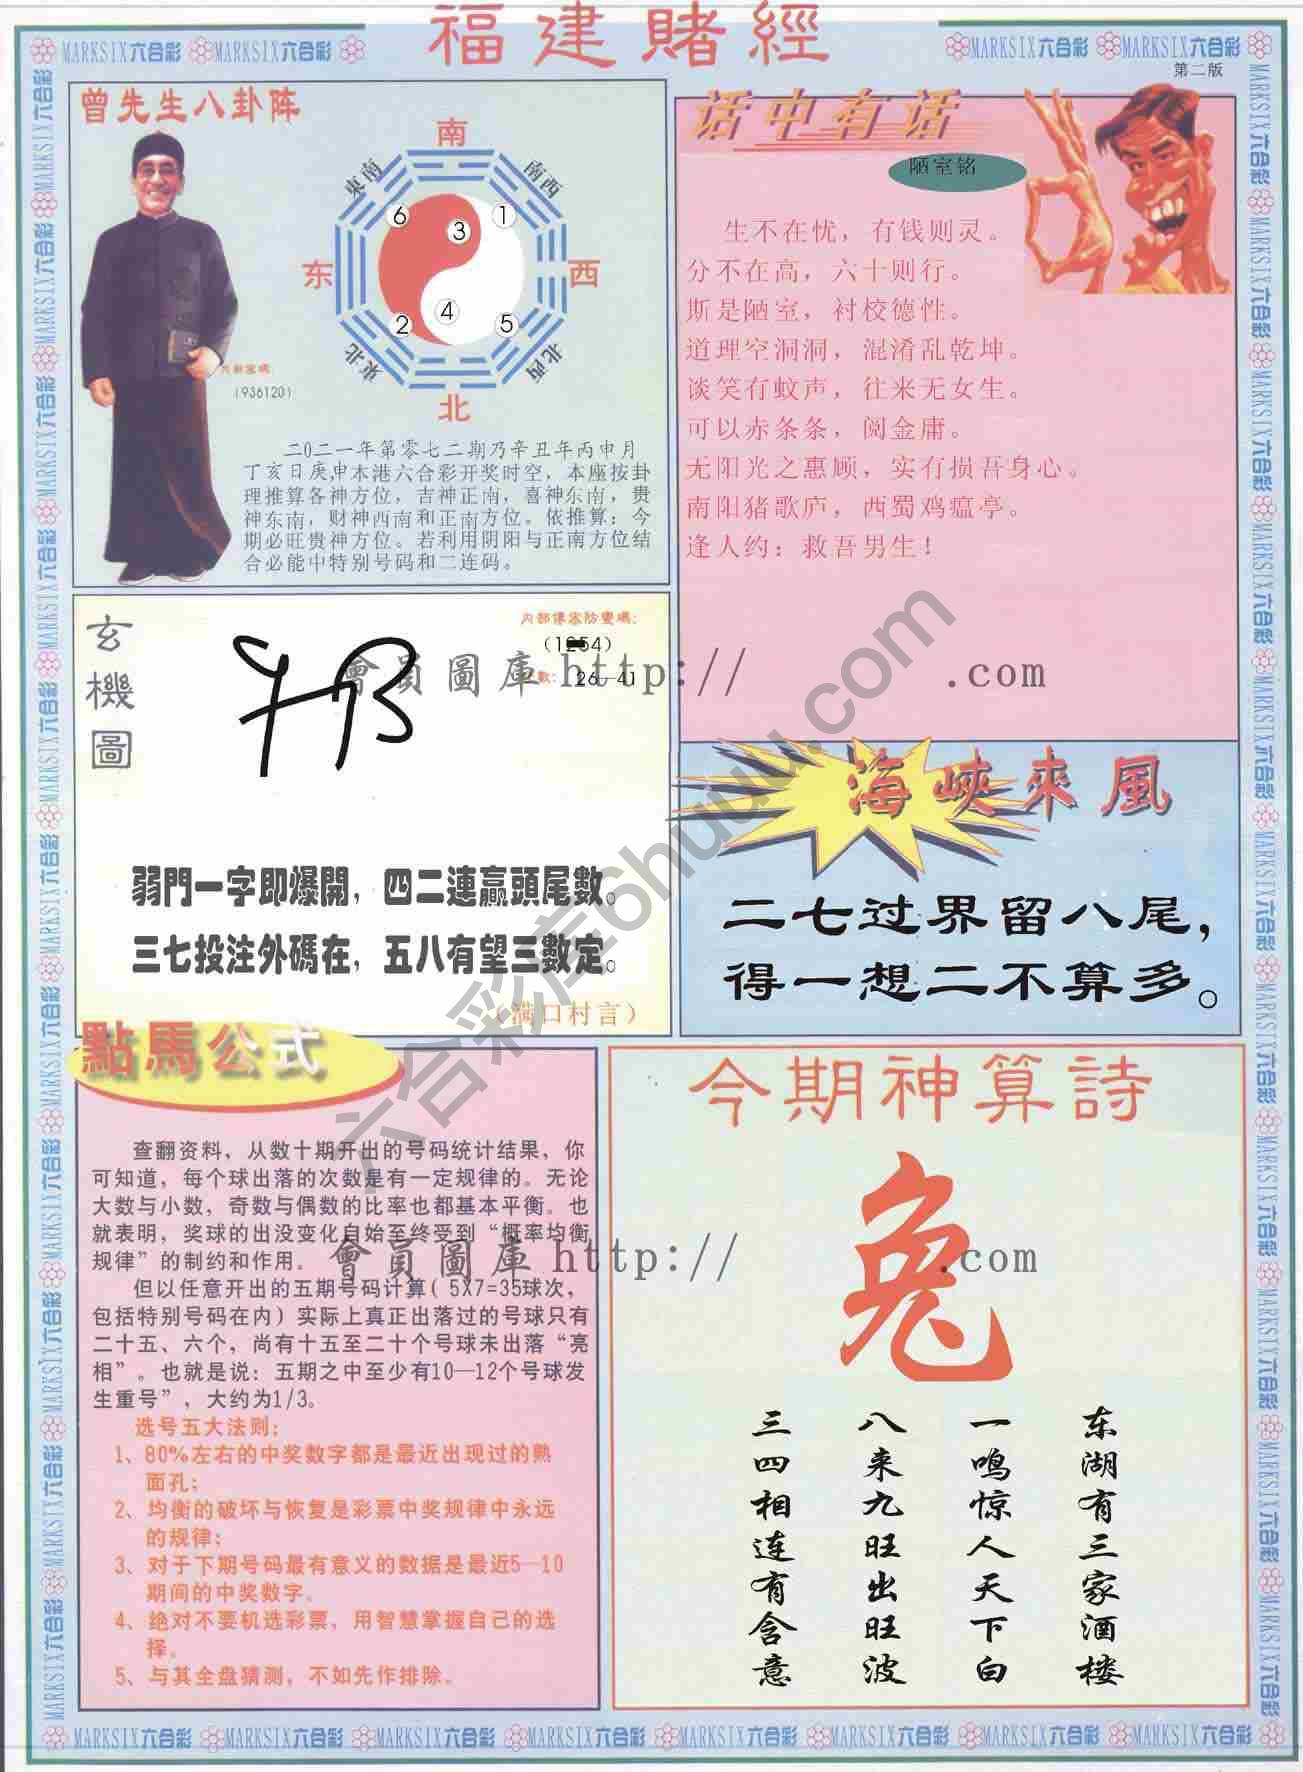 福建賭經
MARKSIX六合彩 MARKSIX六合彩
MARKSIX六合彩 MARKSIX六合彩
第二版
曾先生八卦阵
南
東南
南西
6
1
3
东
西
4
2
5
東北
北西
北
(936120)
二〇二一年第零七二期乃辛丑年丙申月
丁亥日庚申本港六合彩开奖时空，本座按卦
理推算各神方位，吉神正南，喜神东南，贵
神东南，财神西南和正南方位。依推算：今
期必旺贵神方位。若利用阴阳与正南方位结
合必能中特别号码和二连码。
话中有话
陋室铭
生不在忧，有钱则灵。
分不在高，六十则行。
斯是陋室，衬校德性。
道理空洞洞，混淆乱乾坤。
谈笑有蚊声，往来无女生。
可以赤条条，阅金庸。
无阳光之惠顾，实有损吾身心。
南阳猪歌庐，西蜀鸡瘟亭。
逢人约：救吾男生！
玄機圖
26—41
會員圖庫 http:// .com
弱門一字即爆開，四二連贏頭尾數。
三七投注外碼在，五八有望三數定。
（满口村言）
海峽來風
二七过界留八尾，
得一想二不算多。
六合彩库6huuu.com
點馬公式
查翻资料，从数十期开出的号码统计结果，你
可知道，每个球出落的次数是有一定规律的。无论
大数与小数，奇数与偶数的比率也都基本平衡。也
就表明，奖球的出没变化自始至终受到“概率均衡
规律”的制约和作用。
但以任意开出的五期号码计算( 5X7=35球次，
包括特别号码在内）实际上真正出落过的号球只有
二十五、六个，尚有十五至二十个号球未出落“亮
相”。也就是说：五期之中至少有10—12个号球发
生重号”，大约为1/3。
选号五大法则：
1、80%左右的中奖数字都是最近出现过的熟
面孔；
2、均衡的破坏与恢复是彩票中奖规律中永远
的规律；
3、对于下期号码最有意义的数据是最近5—10
期间的中奖数字。
4、绝对不要机选彩票，用智慧掌握自己的选
择。
5、与其全盘猜测，不如先作排除。
會員圖庫 http:// .com
今期神算詩
兔
东湖有三家酒楼
一鸣惊人天下白
八来九旺出旺波
三四相连有含意
MARKSIX六合彩 MARKSIX六合彩 MARKSIX六合彩 MARKSIX六合彩 MARKSIX六合彩 MARKSIX六合彩 MARKSIX六合彩 MARKSIX六合彩